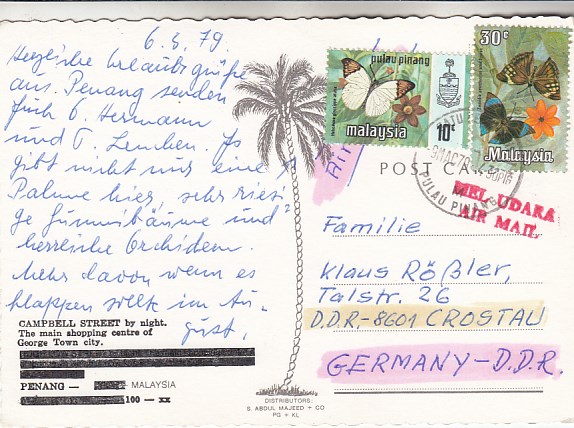 6.3.79.
Herzliche Urlaubsgrüße
aus Penang senden
Euch G. Hermann
und T. Lemchen. Es
gibt nicht nur eine
Palme hier, sehr riesi-
ge Gummibäume und
herrliche Orchideen.
Mehr davon wenn es
klappen sollt im Au-
gust.
CAMPBELL STREET by night.
The main shopping centre of
George Town city.
PENANG - MALAYSIA
100 - xx
DISTRIBUTORS:
S. ABDUL MAJEED + CO
PG + KL
pulau pinang
malaysia
10c
30c
Malaysia
PULAU PINANG
POST CARD
MEL UDARA
AIR MAIL
Familie
Klaus Rößler,
Talstr. 26
D.D.R.-8601 CROSTAU
GERMANY-D.D.R.